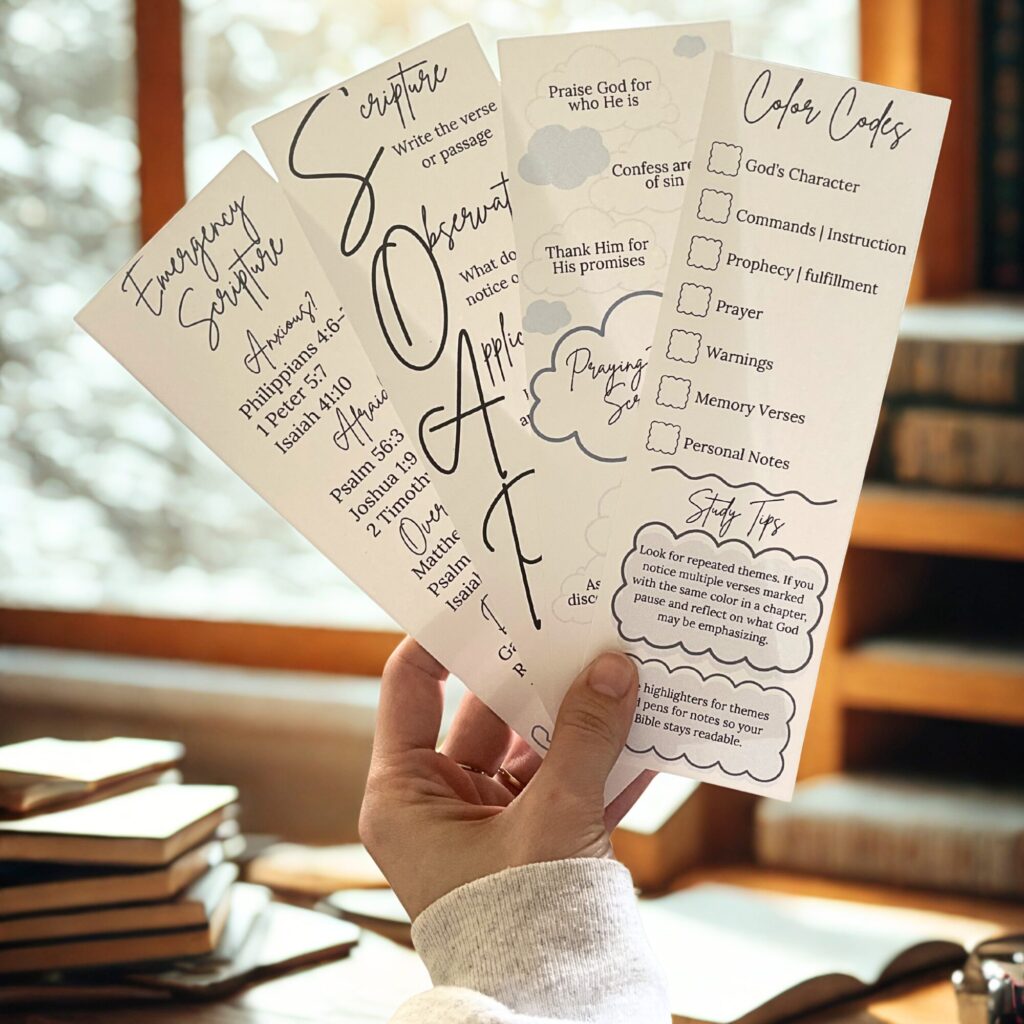 Emergency
Scripture
Anxious?
Philippians 4:6-
1 Peter 5:7
Isaiah 41:10
Psalm 56:3
Joshua 1:9
2 Timoth
Over
Matthe
Psalm
Isaia
Ga
R
Scripture
Write the verse
or passage
Observat
What do
notice o
Applic
T
Praise God for
who He is
Confess are
of sin
Thank Him for
His promises
Praying
Scr
As
disc
Color Codes
God's Character
Commands | Instruction
Prophecy | fulfillment
Prayer
Warnings
Memory Verses
Personal Notes
Study Tips
Look for repeated themes. If you
notice multiple verses marked
with the same color in a chapter,
pause and reflect on what God
may be emphasizing.
highlighters for themes
pens for notes so your
Bible stays readable.